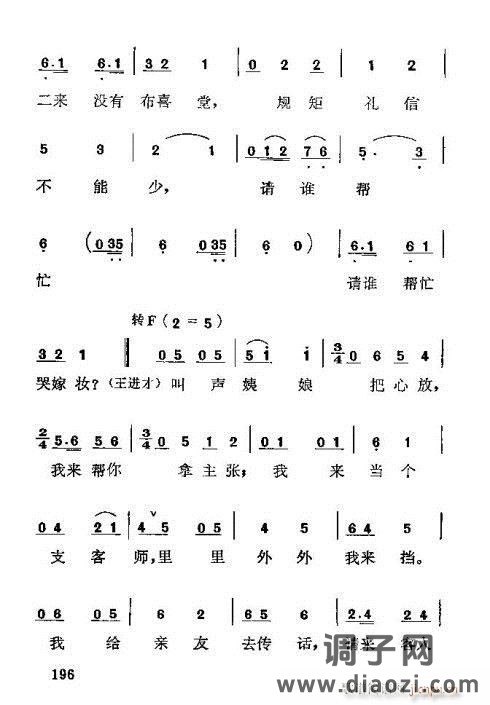 6·1 6·1 | 3 2 1 | 0 2 2 2 | 1 2 |
二来 没有 布喜 堂, 规矩 礼信
5 3 | 2 1 | 0 1 2 7 6 | 5· 3 |
不 能 少, 请 谁 帮
6 (0 35 | 6 0 35 | 6 0) | 6·1 6 1 |
忙 请谁 帮忙
转F(2=5)
3 2 1 ‖ 0 5 0 5 | 5 i i | 3/4 0 6 5 4 |
哭嫁 妆?(王进才)叫 声 姨 娘 把 心 放,
2/4 5·6 5 6 | 3/4 0 5 1 2 | 0 1 0 1 | 6 1 |
我来 帮你 拿 主 张, 我 来 当 个
0 4 2 1 | 4 5 0 5 | 4 5 | 6 4 5 |
支 客 师, 里 里 外 外 我来 挡。
0 6 0 5 | 6 2 | 6 5 6 | 2·4 2 4 |
我 给 亲 友 去传 话, 来
196
调子网
www.diaozi.com